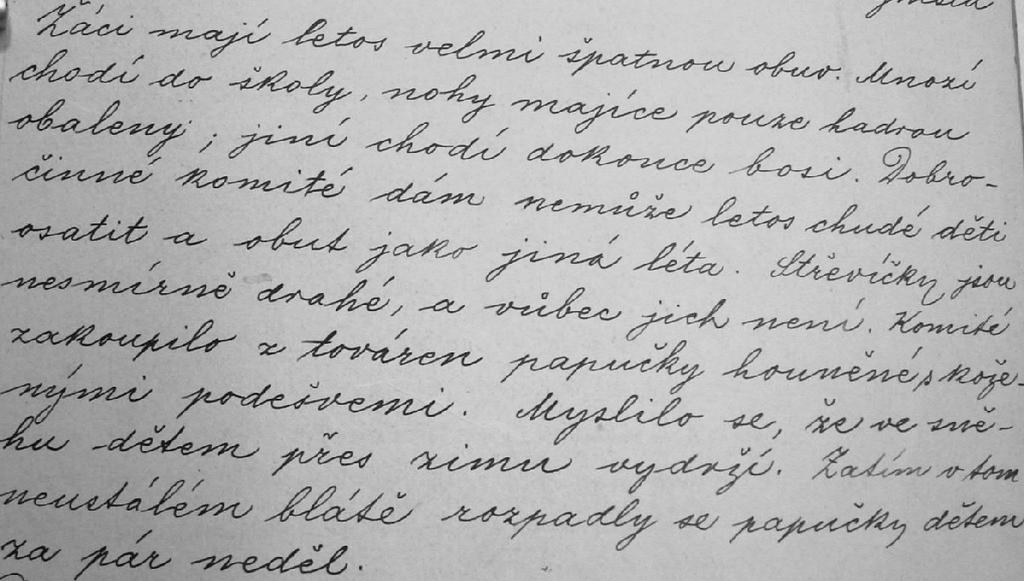 Žáci mají letos velmi špatnou obuv. Mnozí
chodí do školy, nohy majíce pouze hadrou
obaleny; jiní chodí dokonce bosi. Dobro-
činné komité dám nemůže letos chudé děti
osatit a obut jako jiná léta. Střevíčky jsou
nesmírně drahé, a vůbec jich není. Komité
zakoupilo z továren papučky houněné s kože-
nými podešvemi. Myslilo se, že ve sně-
hu dětem přes zimu vydrží. Zatím v tom
neustálém blátě rozpadly se papučky dětem
za pár neděl.